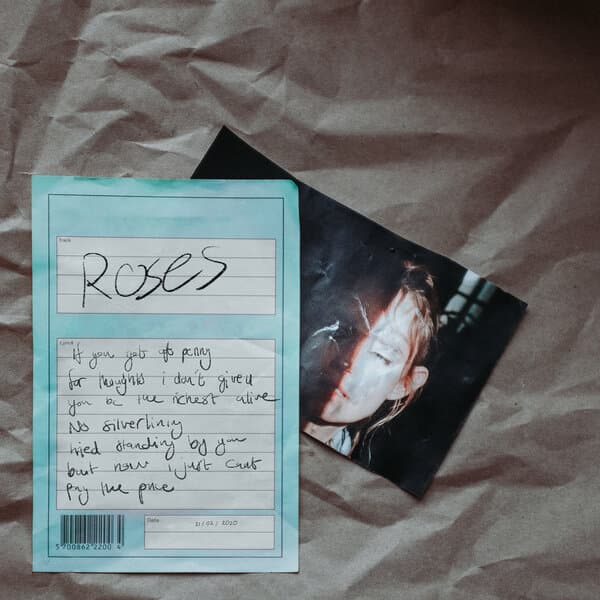 Track
Roses
Lyrics
If you got a penny
for thoughts i don't give u
you be the richest alive
No silverlining
tried standing by you
but now i just cant
pay the price
5 700862 2200 4
Date
21/02/2020